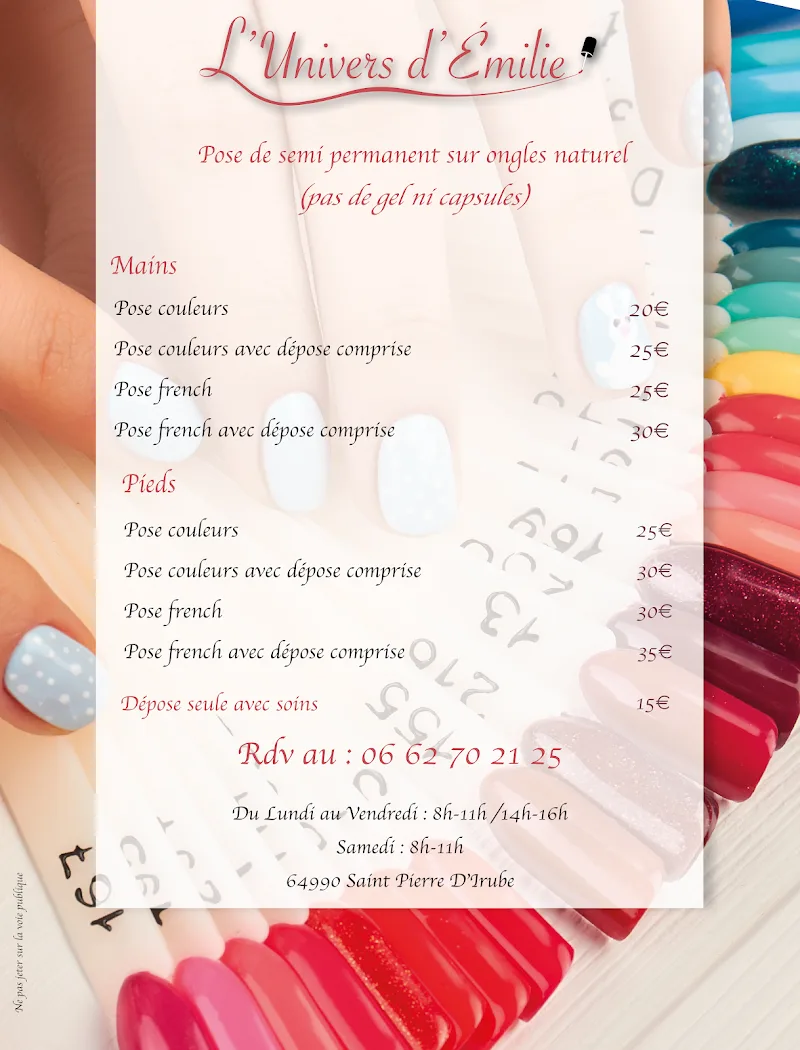 L'Univers d'Émilie
Pose de semi permanent sur ongles naturel
(pas de gel ni capsules)
Mains
Pose couleurs 20€
Pose couleurs avec dépose comprise 25€
Pose french 25€
Pose french avec dépose comprise 30€
Pieds
Pose couleurs 25€
Pose couleurs avec dépose comprise 30€
Pose french 30€
Pose french avec dépose comprise 35€
Dépose seule avec soins 15€
Rdv au : 06 62 70 21 25
Du Lundi au Vendredi : 8h-11h /14h-16h
Samedi : 8h-11h
64990 Saint Pierre D'Irube
Ne pas jeter sur la voie publique
109
13
210
155
167